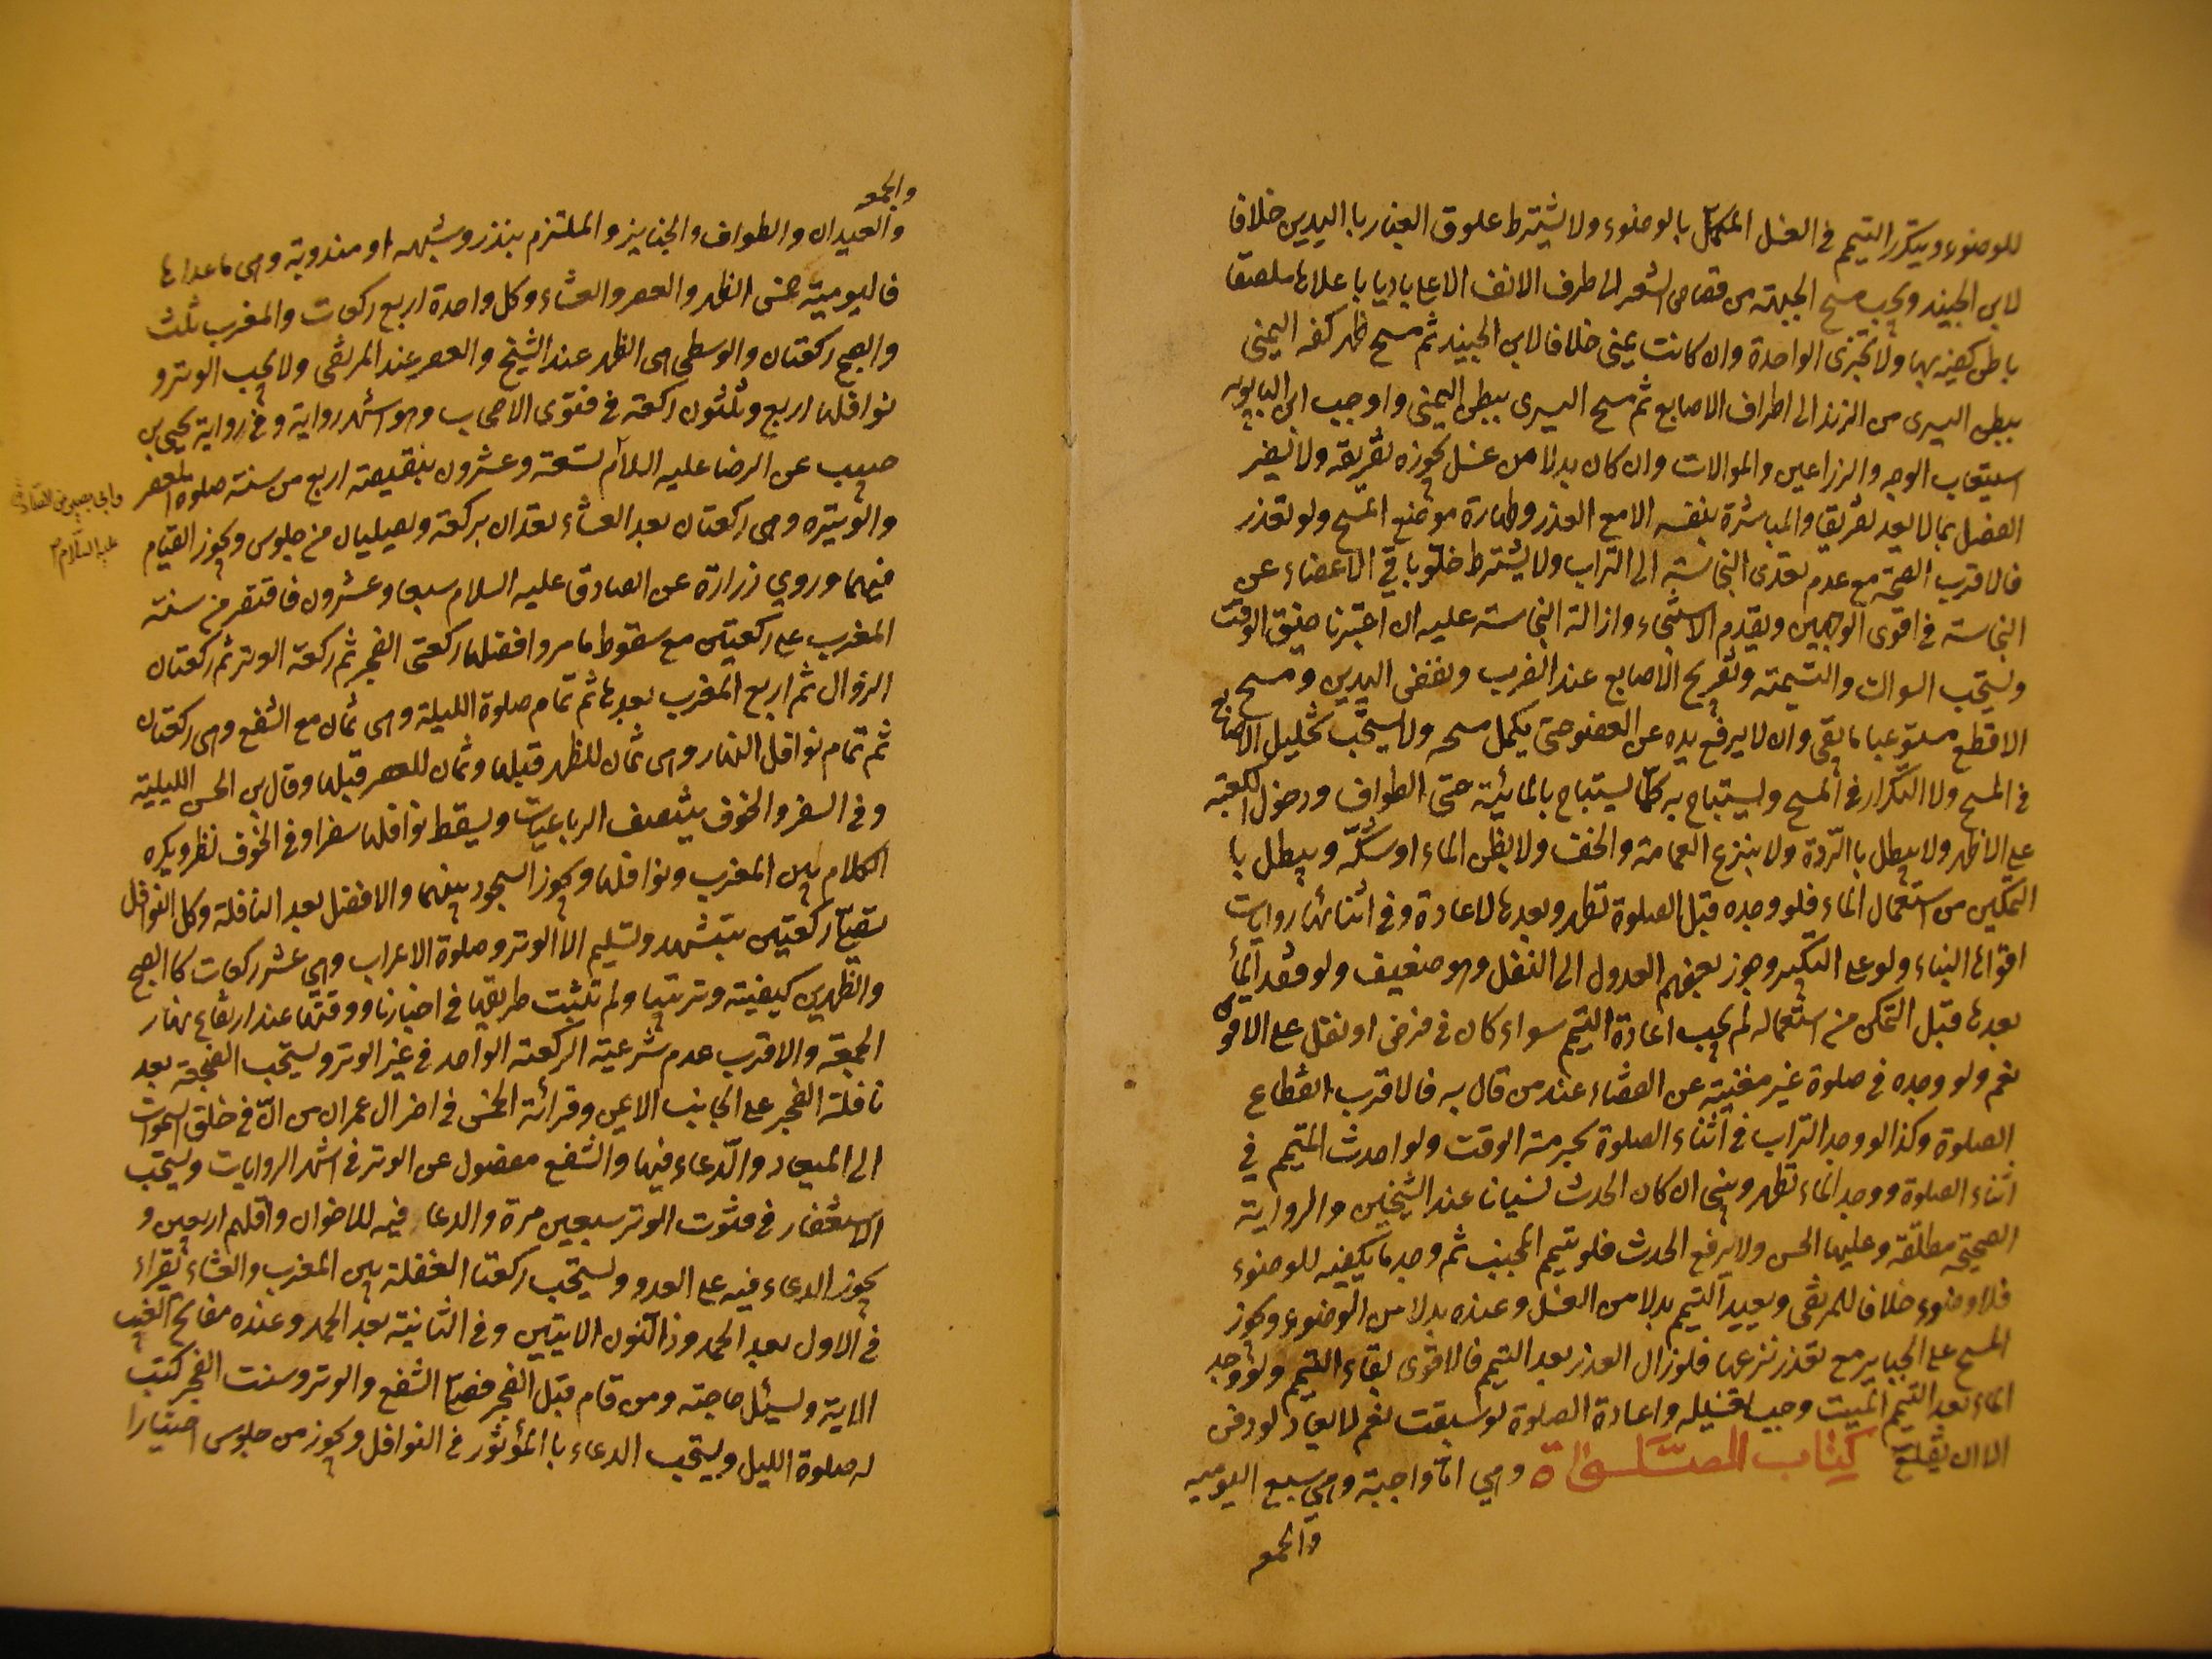 للوضوء ويتكرر التيمم في الغسل المكمل بالوضوء ولا يشترط علوق الغبار بااليدين خلافا
لابن الجنيد ويجب مسح الجبهة من قصاص الشعر الى طرف الانف الاعلى باديا باعلاها ملصقا
باطن كفيه بها ولا تجزى الواحدة وان كانت يمنى خلافا لابن الجنيد ثم مسح ظهر كفه اليمنى
ببطن اليسرى من الزند الى اطراف الاصابع ثم مسح اليسرى ببطن اليمنى واوجب ابن البابويه
استيعاب الوجه والذراعين والموالات وان كان بدلا من غسل يجوزه تفريقه ولا يضر
الفصل بما لا يعد تفريقا والمباشرة بنفسه الا مع العذر وطهارة موضع المسح ولو تعذر
فالاقرب الصحة مع عدم تعدى النجاسة الى التراب ولا يشترط خلو باقي الاعضاء عن
النجاسة في اقوى الوجهين ويقدم الاستنجاء وازالة النجاسة عليه ان اعتبرنا ضيق الوقت
ويستحب السواك والتسمية وتفريج الاصابع عند الضرب ونفض اليدين ومسح
الاقطع مستوعبا ما بقي وان لا يرفع يده عن العضو حتى يكمل مسحه ولا يستحب تخليل الاصابع
في المسح ولا التكرار في المسح ويستباح به كلما يستباح بالمائية حتى الطواف ودخول الكعبة
على الاظهر ولا يبطل باالردة ولا بنزع العمامة والخف ولا بظن الماء او شكه ويبطل با
التمكين من استعمال الماء فلو وجده قبل الصلوة تطهر وبعدها لا اعادة وفي اثنائها روايات
اقواها البناء ولو على التكبير وجوز بعضهم العدول الى النفل وهو ضعيف ولو فقد الماء
بعدها قبل التمكن من استعماله لم يجب اعادة التيمم سواء كان في فرض او نفل على الاقوى
نعم ولو وجده في صلوة غير مغنية عن القضاء عند من قال به فالاقرب انقطاع
الصلوة وكذا لو وجد التراب في اثناء الصلوة بحرمة الوقت ولو احدث المتيمم في
اثناء الصلوة ووجد الماء تطهر وبنى ان كان الحدث نسيانا عند الشيخين والرواية
الصحيحة مطلقة وعليها الحسن ولا يرفع الحدث فلو تيمم المجنب ثم وجد ما يكفيه للوضوء
فلا وضوء خلافا للمرتضى ويعيد التيمم بدلا من الغسل وعنده بدلا من الوضوء ويجوز
المسح على الجباير مع تعذر نزعها فلو زال العذر بعد التيمم فالاقوى بقاء التيمم ولو وجد
الماء بعد التيمم الميت وجب غسله واعادة الصلوة لو سبقت نعم لا يعاد لو دفن
الا ان يقلع كتاب الصلواة وهي اما واجبة وهي سبع اليومية
والجمعه
والجمعه
والعيدان والطواف والجنايز والملتزم بنذر وشبهه او مندوبة وهي ما عداها
فاليومية خمس الظهر والعصر والعشاء وكل واحدة اربع ركعات والمغرب ثلث
والصبح ركعتان والوسطى هى الظهر عند الشيخ والعصر عند المرتضى ولا يجب الوتر و
نوافلها اربع وثلثون ركعة في فتوى الاصحاب وهو اشهر رواية وفي رواية يحيى بن
حبيب عن الرضا عليه السلام تسعة وعشرون بنقيصة اربع من سنة صلوة العصر
وابي بصير عن الصادق
عليه السلام
والوتيره وهى ركعتان بعد العشاء تعدان بركعة ويصليان من جلوس ويجوز القيام
فيهما وروي زرارة عن الصادق عليه السلام سبعا وعشرون فاقتصر من سنة
المغرب على ركعتين مع سقوط ما مر وافضلها ركعتى الفجر ثم ركعة الوتر ثم ركعتان
الزوال ثم اربع المغرب بعدها ثم تمام صلوة الليلة وهى ثمان مع الشفع وهى ركعتان
ثم تمام نوافل النهار وهى ثمان للظهر قبلها وثمان للعصر قبلها وقال بن الحسن الليلية
وفي السفر والخوف ينتصف الرباعيات ويسقط نوافلها سفرا وفي الخوف نظر ويكره
الكلام بين المغرب ونوافلها ويجوز السجود بينهما والافضل بعد النافلة وكل النوافل
تصلى ركعتين بتشهد وتسليم الا الوتر وصلوة الاعراب وهي عشر ركعات كاالصبح
والظهرين كيفية وترتيبا ولم تثبت طريقها في اخبارنا ووقتها عند ارتفاع نهار
الجمعة والاقرب عدم شرعية الركعة الواحد في غير الوتر ويستحب الضجعة بعد
نافلة الفجر على الجانب الايمن وقرائة الخمس في اخر ال عمران من ان في خلق السموات
الى الميعاد والدعاء فيها والشفع مفصول عن الوتر في اشهر الروايات ويستحب
الاستغفار في قنوت الوتر سبعين مرة والدعاء فيه للاخوان واقلهم اربعين و
يجوز الدعاء فيه على العدو ويستحب ركعتا الغفلة بين المغرب والعشاء تقراء
في الاول بعد الحمد وذاالنون الايتين وفي الثانية بعد الحمد وعنده مفاتح الغيب
الاية ويسئل حاجته ومن قام قبل الفجر فصلى الشفع والوتر وسنت الفجر كتب
له صلوة الليل ويستحب الدعاء باالمؤثور في النوافل ويجوز من جلوس اختيارا